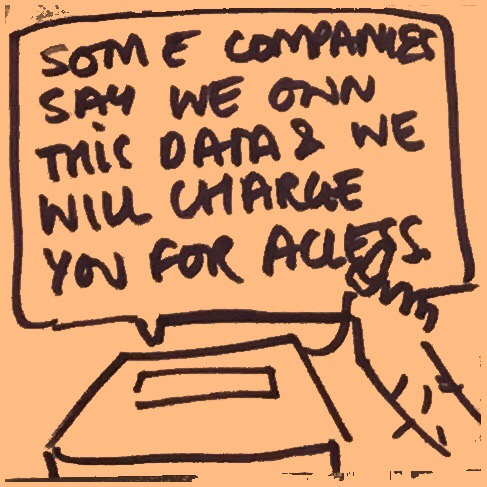 SOME COMPANIES
SAY WE OWN
THIS DATA & WE
WILL CHARGE
YOU FOR ACCESS.